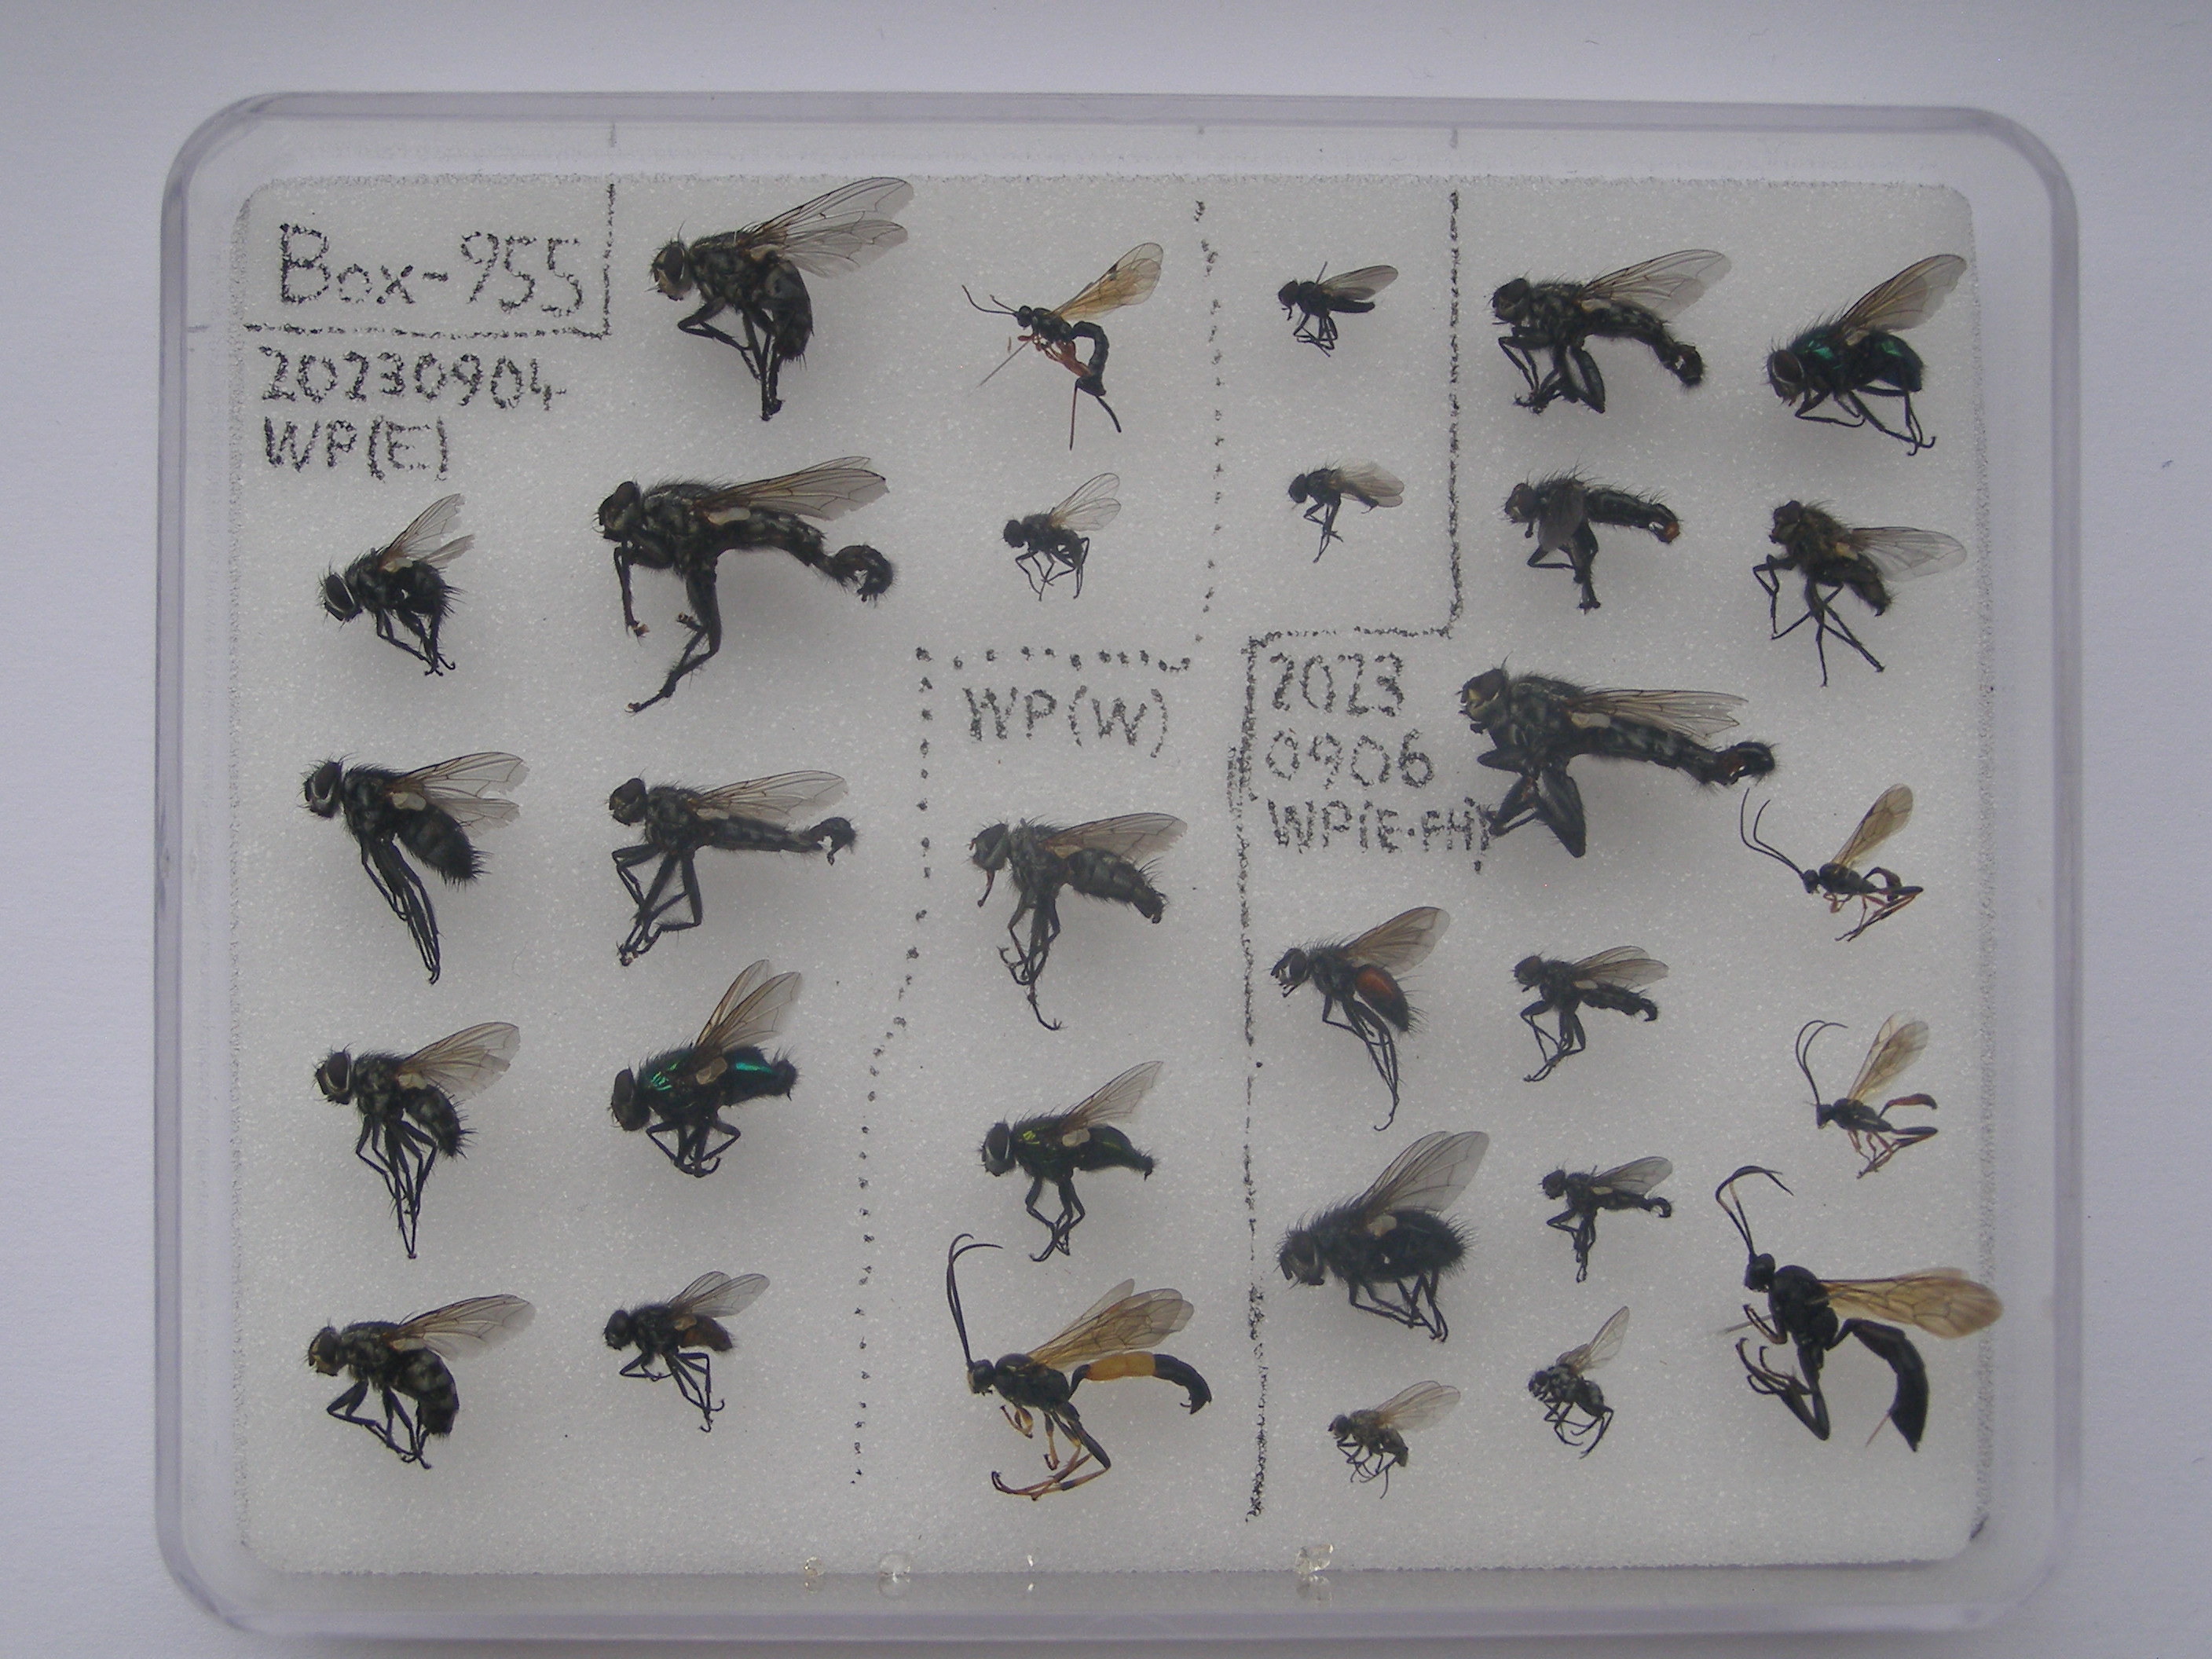 Box-955
20230904
WP(E)
WP(W)
2023
0906